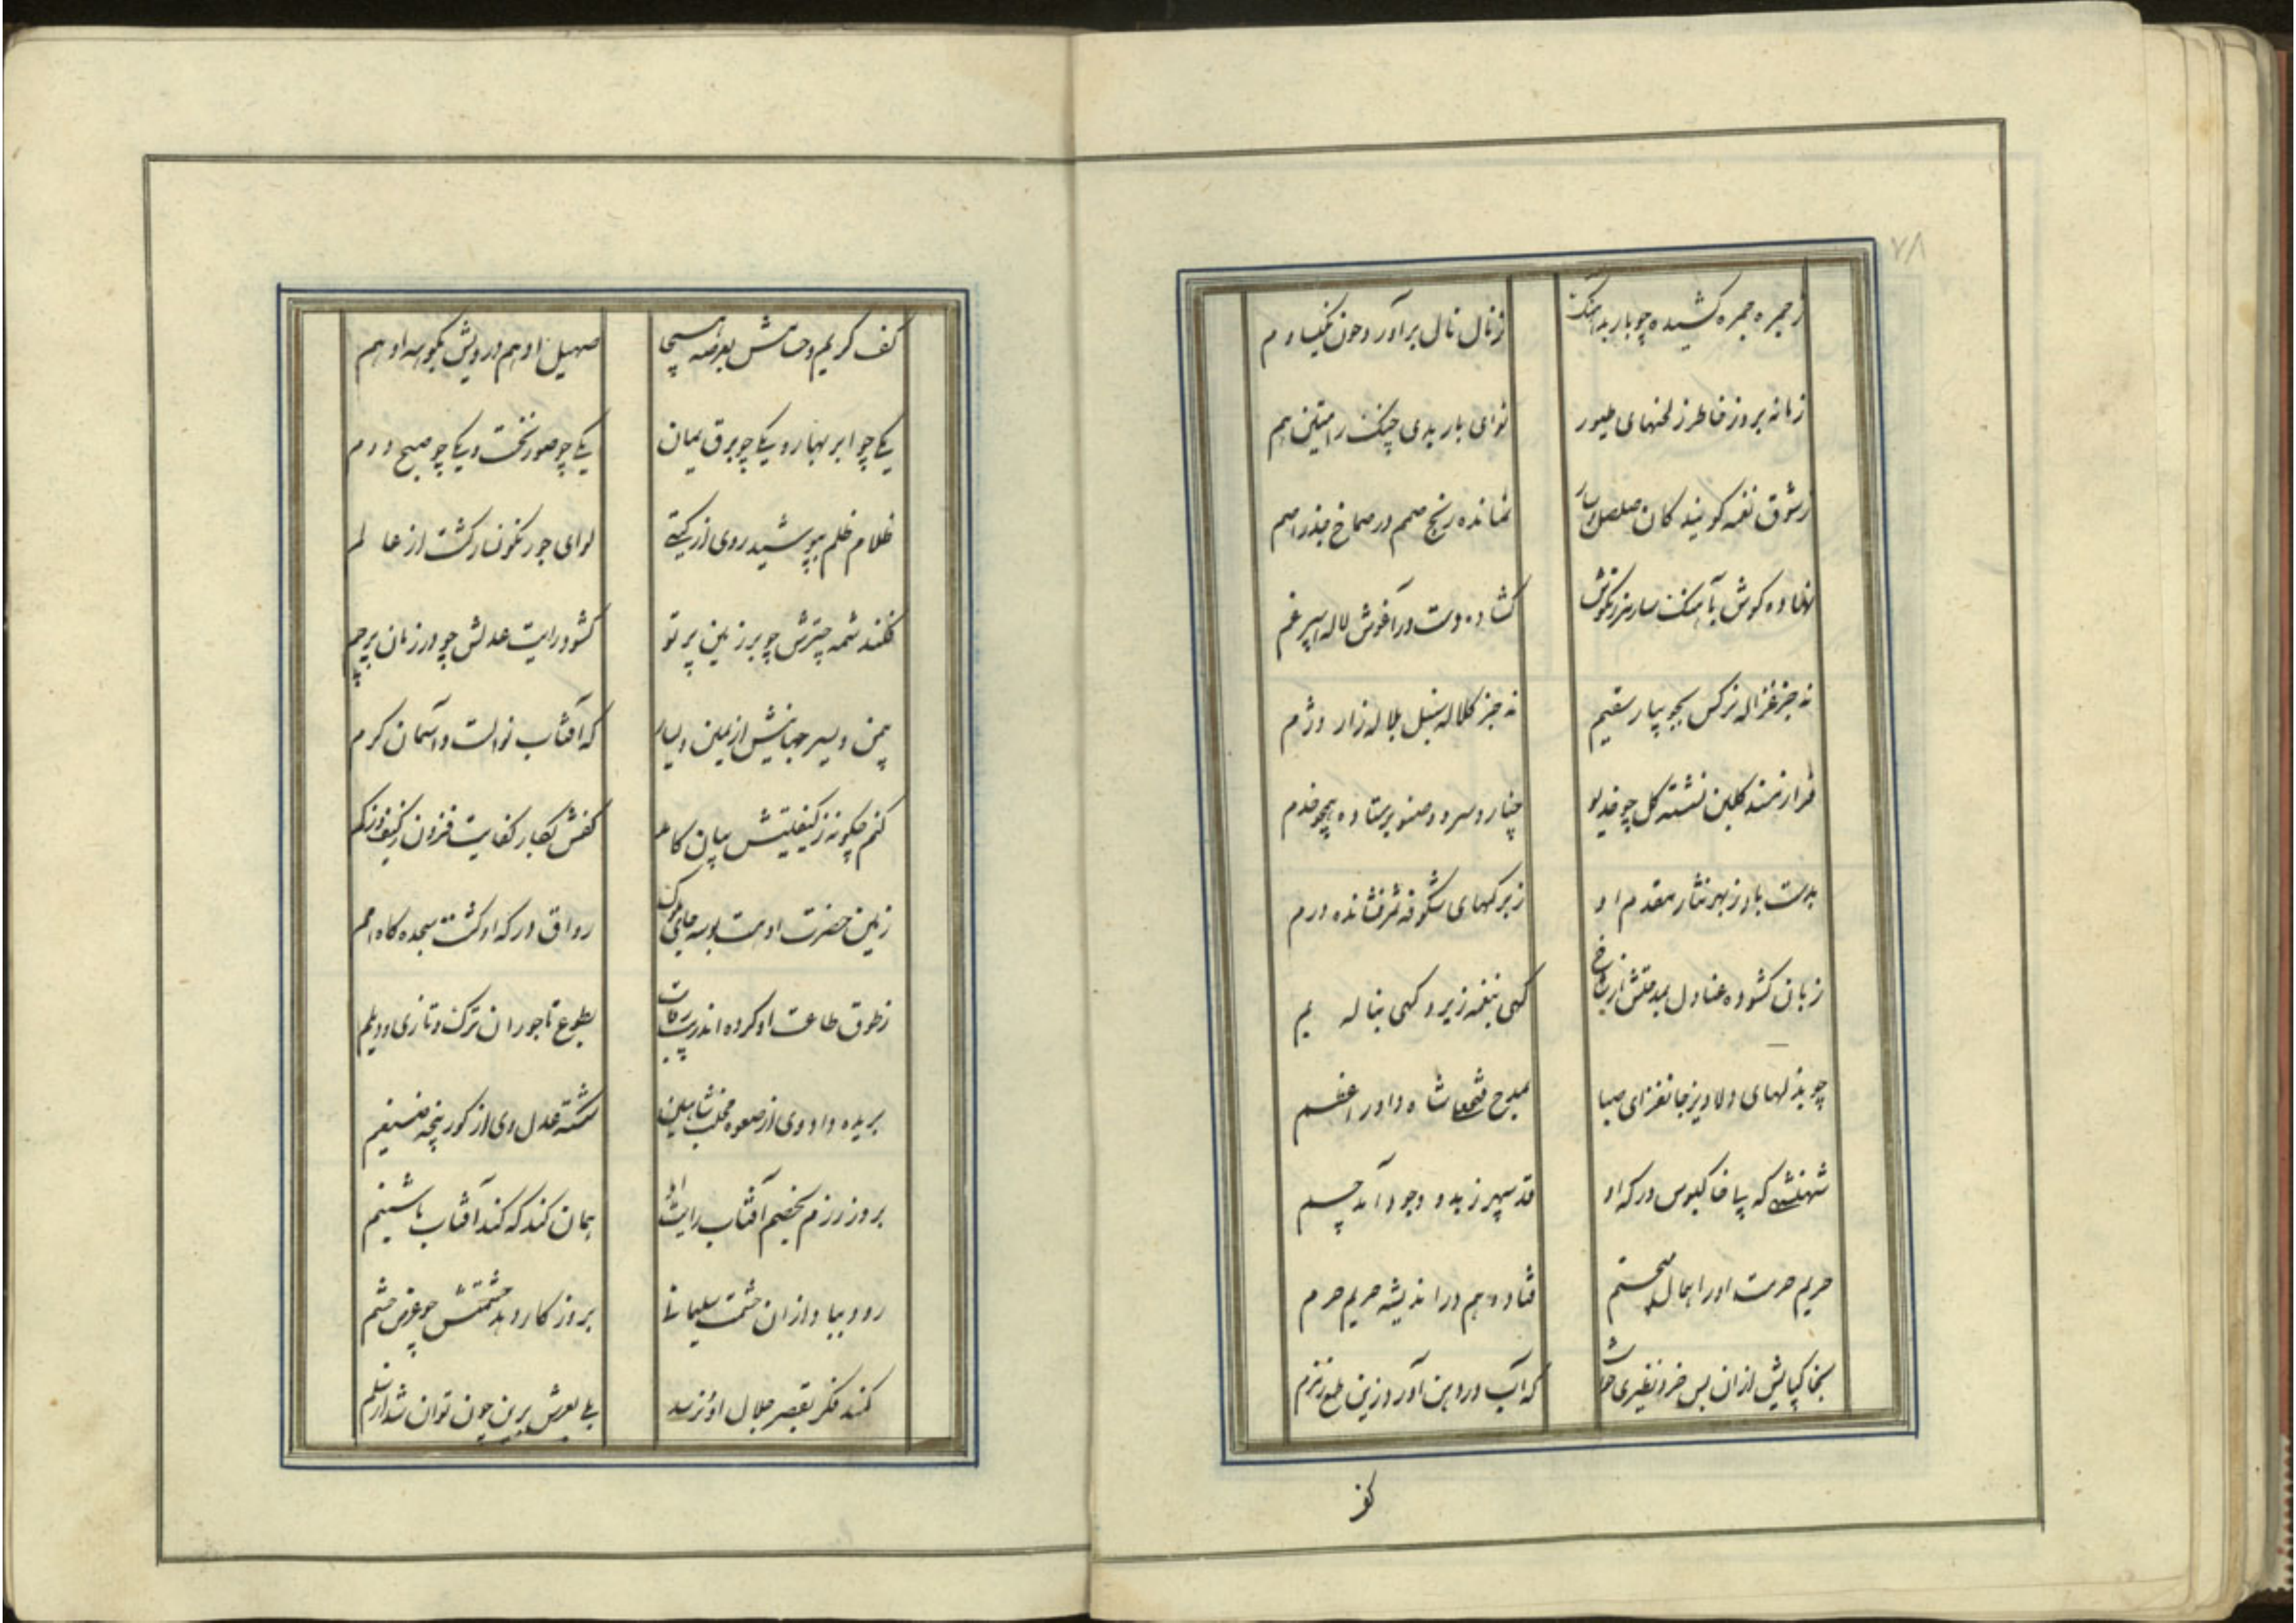 ۷۸
ز حمره حمره کشیده چو باربد آهنک
ز نال نال برآورد چون نکیسا دم
زمانه بروز خاطر ز لحنهای طیور
نوای باربدی چنک رامتین هم
ز شوق نغمه کان صلصل و سار
نمانده رنج صمم در صماخ جذر اصم
نهاده کوش بآهنک سار مرزنکوش
کشاده دست در آغوش لاله اسپرغم
نه جز غزاله نرکس بجویبار سقیم
نه جز کلاله سنبل بلاله زار دژم
فراز مسند کلبن نشسته کل چو خدیو
چنار و سرو و صنوبر ستاده همچو خدم
بدست باد ز بهر نثار مقدم او
ز برکهای شکوفه فشانده درم
زبان کشوده عنادل بمدحتش از شاخ
کهی بنغمه زیر و کهی بناله بم
چو بذلهای دلاویز جانفزای صبا
بمدح شاه داور اعظم
شهنشهی که پی خاکبوس درکه او
قد سپهر ز بدو وجود آمد خم
حریم حرمت او را همال
فتاده وهم در اندیشه حریم حرم
بخاکپایش از آن پس خرد نظیری خواست
که آب در دهن آورد زین طمع زمزم
کف
کف کریم و حسامش بعرصه هیجا
صهیل ادهم در وغا
یکی چو ابر بهار و یکی چو برق یمان
یکی چو صور نخست و یکی چو صبح دوم
ظلام ظلم بپوشید روی از کیتی
لوای جور نکونسار کشت از عالم
فکند شمه چترش چو بر زمین پرتو
کشود رایت عدلش چو در زمان پرچم
یمن و یسر جهانیش از یمین و یسار
که آفتاب نوالست و آسمان کرم
کنم چکونه ز کیفیتش بیان کامد
کفش بکار کفایت فزون ز کیف و ز کم
زمین حضرت او هست بوسه جای ملوک
رواق درکه او کشت سجده کاه امم
ز طوق طاعت او کرده اند رقاب
بطوع تاجوران ترک و تازی و دیلم
بریده داد وی از صعوه مخلب شاهین
شکسته عدل وی از کور پنجه ضیغم
بروز رزم بخصم آفتاب رایت او
همان کند که کند آفتاب با شبنم
رود بباد از آن حشمت سلیمانی
بروز کار دهد حشمتش چو عرض حشم
کمند فکر بقصر جلال او نرسد
بلی بعرش برین چون توان شد از سلم